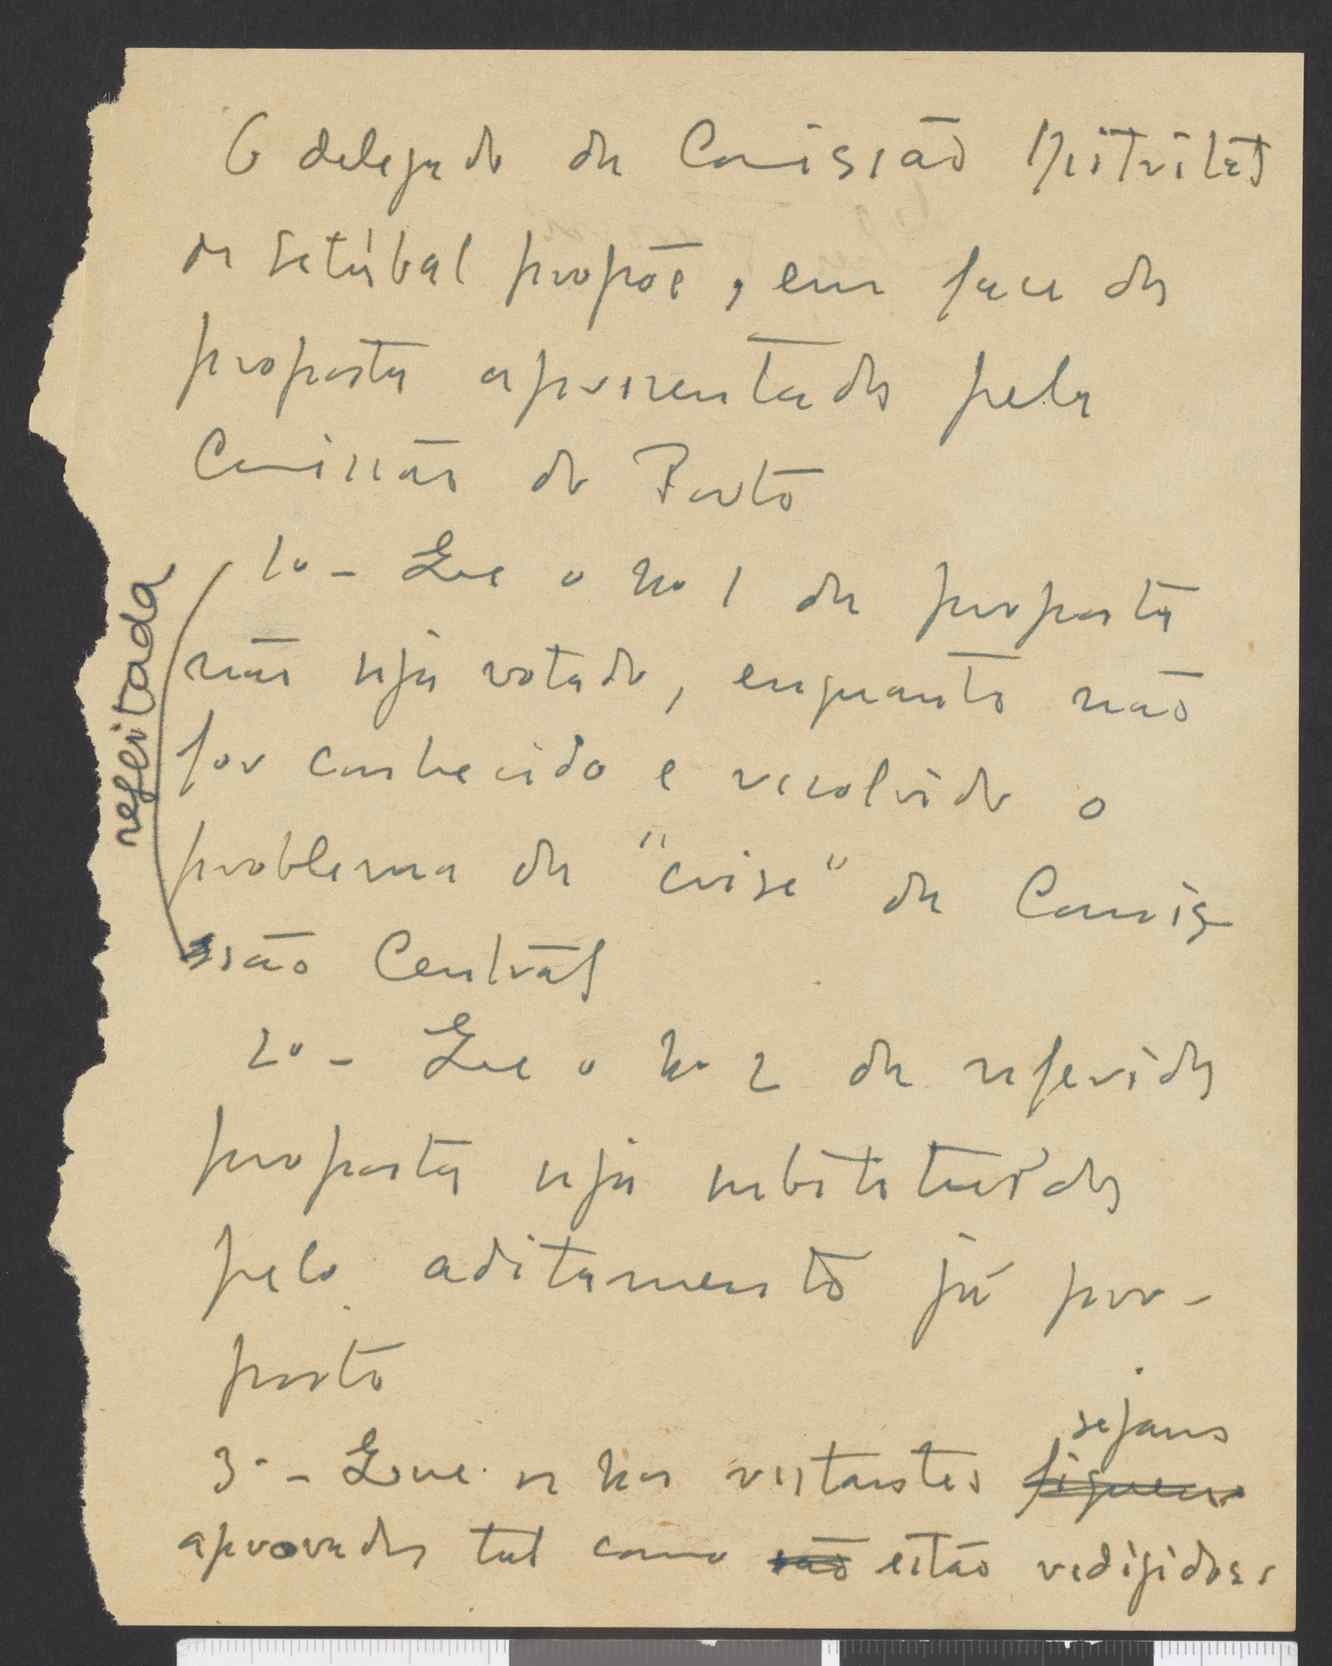 O delegado da Comissão Distrital
de Setúbal propõe, em face da
proposta apresentada pela
Comissão do Porto
1º - Que o no 1 da proposta
não seja votado, enquanto não
for conhecido e resolvido o
problema da "crise" da Comis-
são Central
rejeitada
2º - Que o no 2 da referida
proposta seja substituída
pelo aditamento já pro-
posto
sejam
3º - Que os nos restantes fiquem
aprovados tal como são estão redigidos.